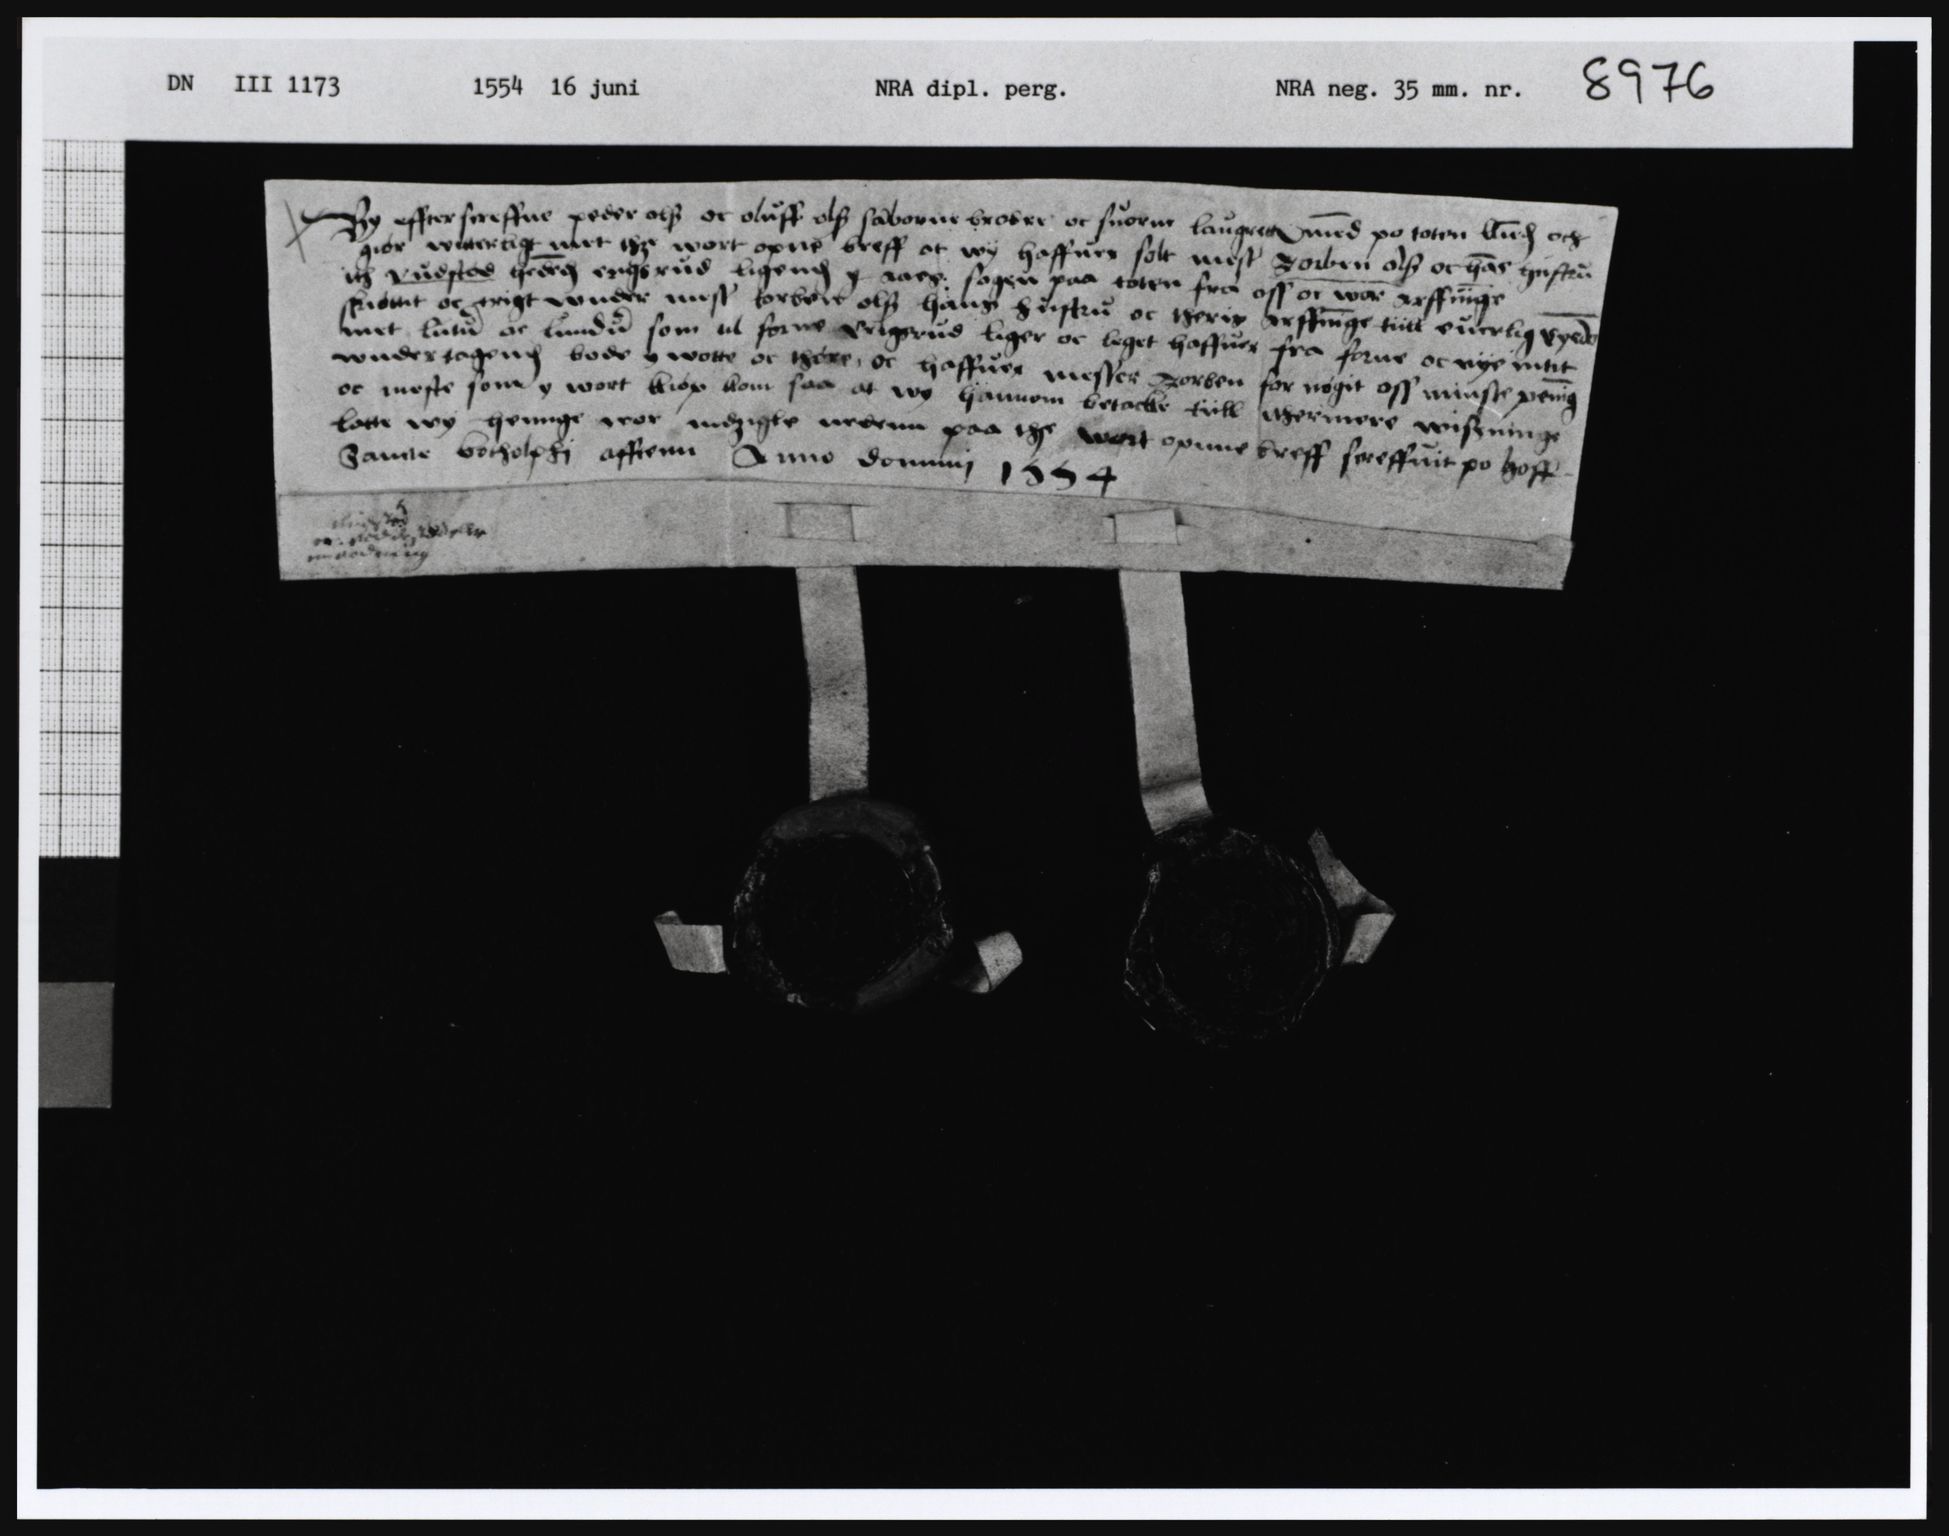 DN III 1173 1554 16 juni NRA dipl. perg. NRA neg. 35 mm. nr. 8976
Wy effterscreffne peder olß oc oluff olß saborne brødre oc suorne laugrettis med po toten
giør witterligt met thz wort opne breff at wy haffuer solt mest Torben olß oc hãs hustrũ
itz Rudstad hedẽdh engsrud ligendh y aaes sogen paa toten fra oss oc wore arffĩnge
oc frigt wnder mest torben olß hans hustru oc theris arffinge till euerlig eyedõ
met lutũ oc lundũ som til forne engsrud liger oc leget haffuer fra forne oc nye intit
wndertagendh bode y wotte oc thøre oc haffuer messter Torben for nøgit oss minste pẽnig
oc meste som y wort kiøp kom saa at wy hannom betacke till thermere wisninge
lotte wy henge wor indzigle nedenn paa the wort opnne breff screffuit po hoff
Sancte botholphj afftenn Anno dominij 1554